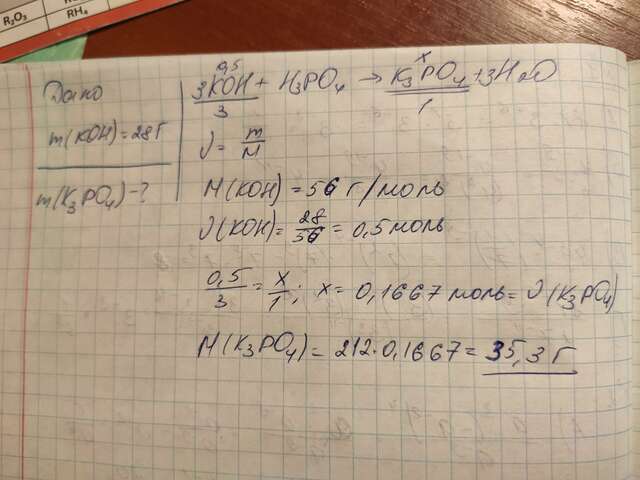 R₂O₃
RH₄
Дано
m(KOH)=28г
m(K₃PO₄)-?
0,5 x
3KOH + H₃PO₄ → K₃PO₄+3H₂O
3 1
ν = m/M
M(KOH) = 56 г/моль
ν(KOH) = 28/56 = 0,5 моль
0,5/3 = x/1; x = 0,1667 моль = ν(K₃PO₄)
M(K₃PO₄) = 212·0,1667 = 35,3 г